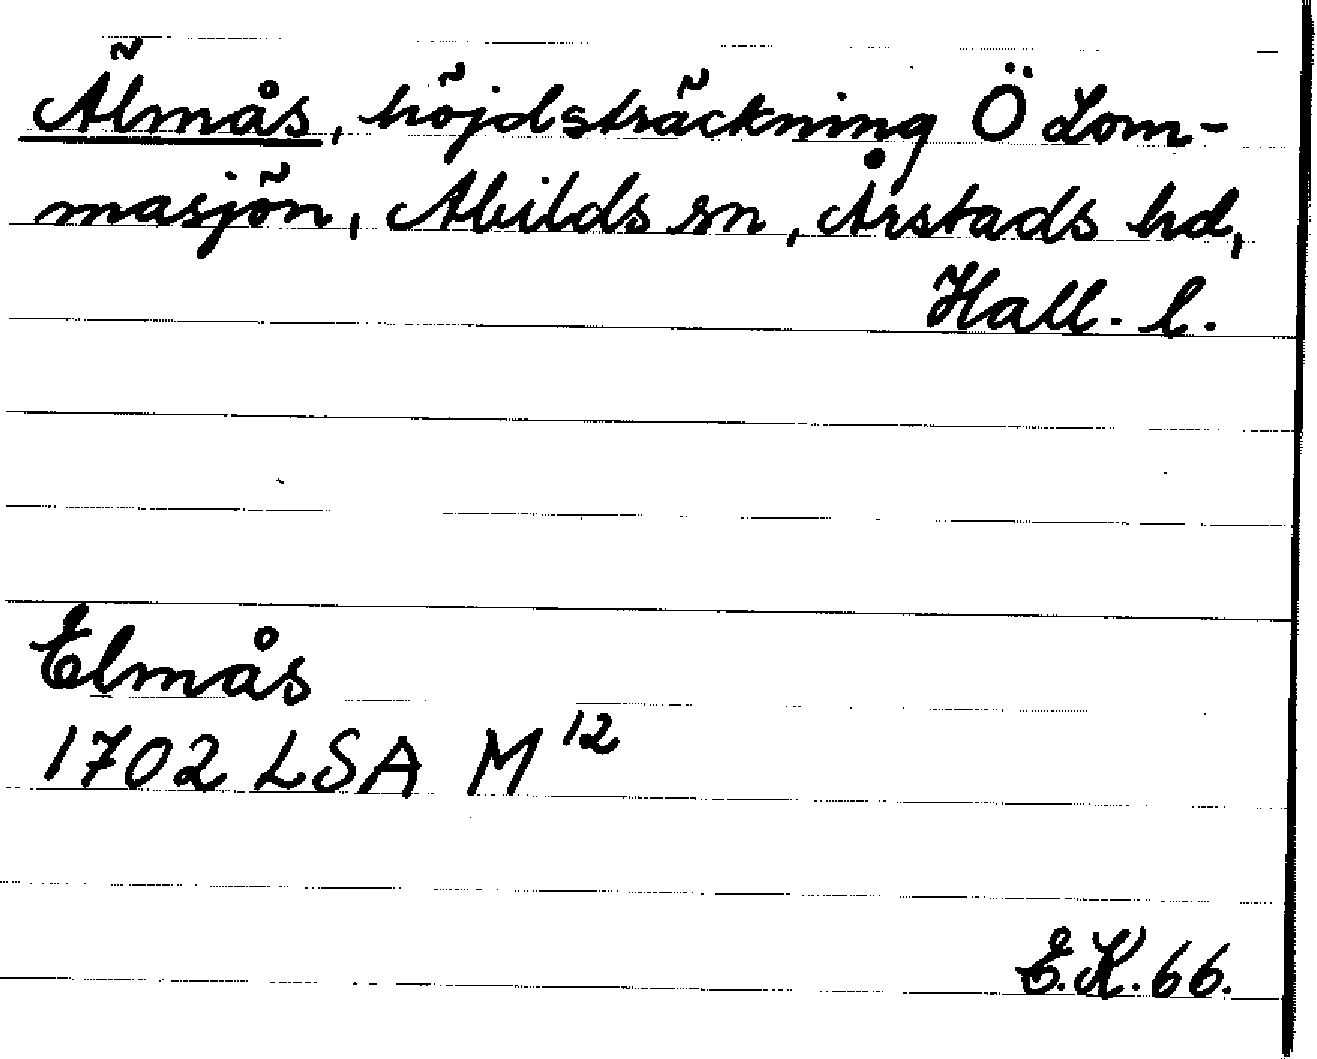 Älmås, höjdsträckning Ö Lom-
masjön, Abilds sn, Årstads hd,
Hall. l.
Elmås
1702 LSA M 12
E.K. 66.